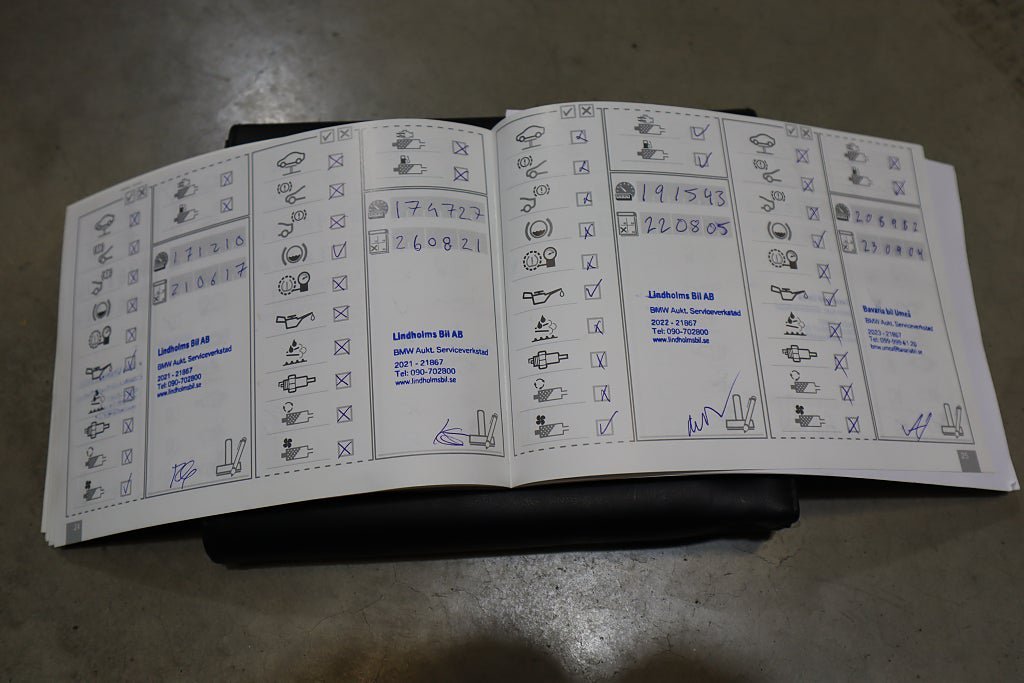 171210
210617
Lindholms Bil AB
BMW Aukt. Serviceverkstad
2021 - 21867
Tel: 090-702800
www.lindholmsbil.se
24
174727
260821
Lindholms Bil AB
BMW Aukt. Serviceverkstad
2021 - 21867
Tel: 090-702800
www.lindholmsbil.se
191543
220805
Lindholms Bil AB
BMW Aukt. Serviceverkstad
2022 - 21867
Tel: 090-702800
www.lindholmsbil.se
230904
Bavaria bil Umeå
BMW Aukt. Serviceverkstad
2023 - 21867
25